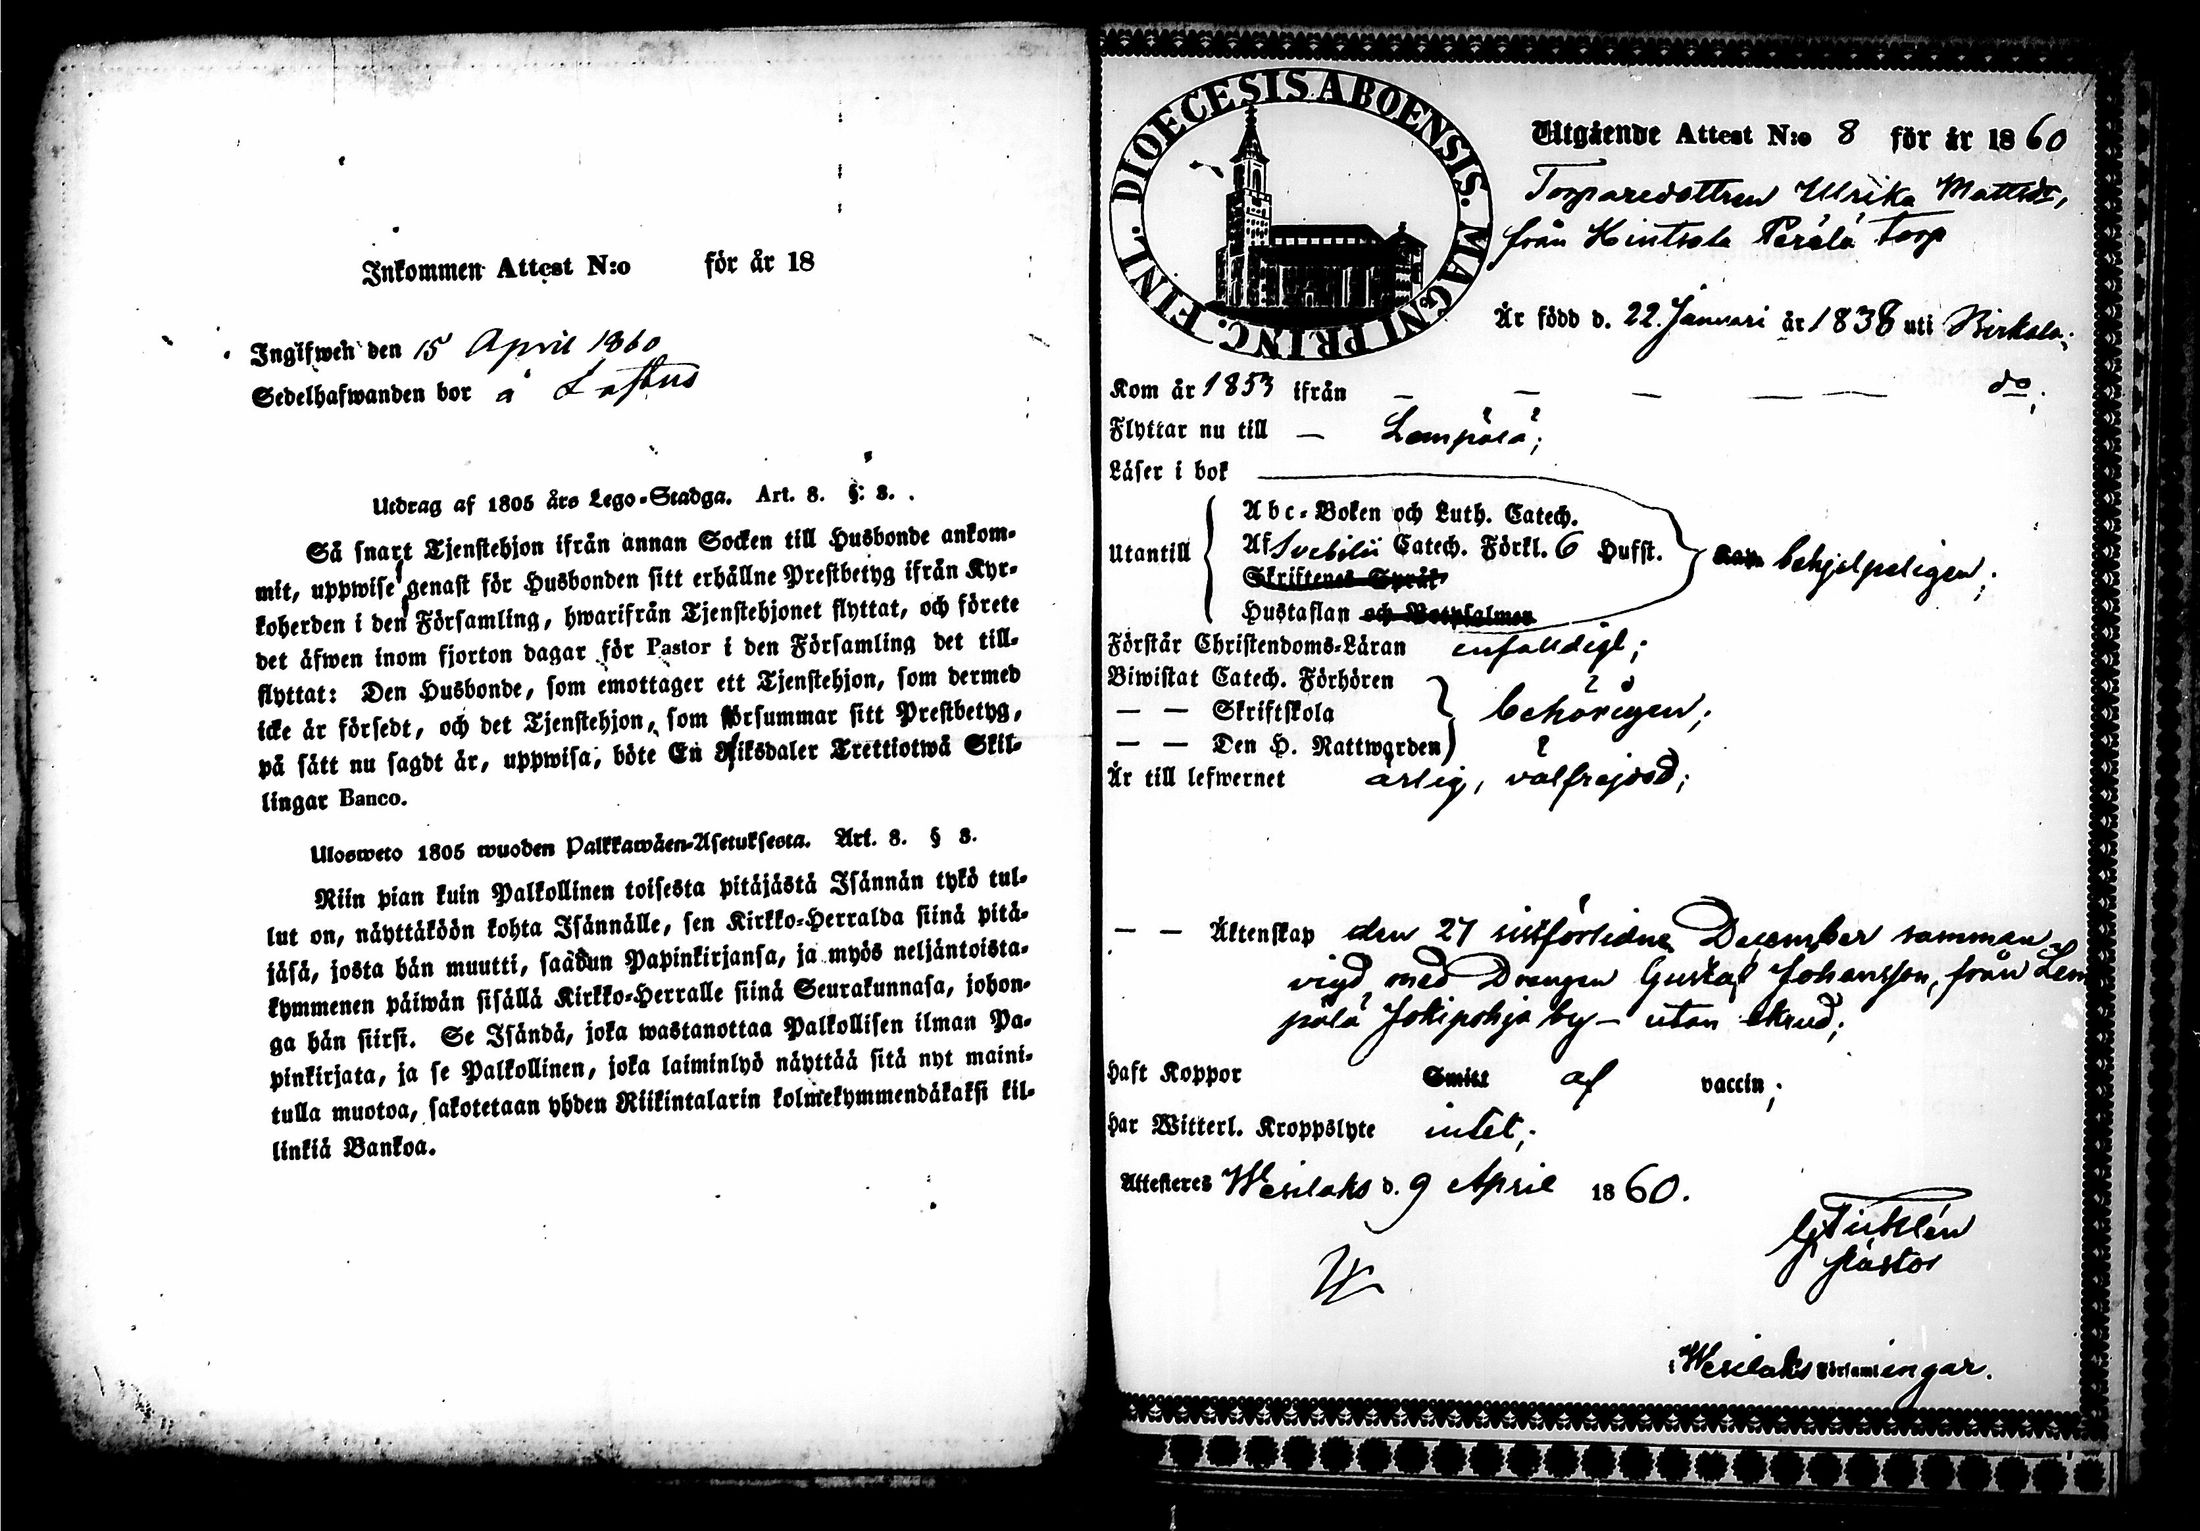 Inkommen Attest N:o för år 18
Ingifwen den 15 April 1860
Sedelhafwanden bor å Lastus
Utdrag af 1805 års Lego-Stadga. Art. 8. §: 3.
Så snart Tjenstehjon ifrån annan Socken till Husbonde ankom-
mit, uppwise genast för Husbonden sitt erhållne Prestbetyg ifrån Kyr-
koherden i den Församling, hwarifrån Tjenstehjonet flyttat, och förete
det äfwen inom fjorton dagar för Pastor i den Församling det till-
flyttat: Den Husbonde, som emottager ett Tjenstehjon, som dermed
icke är försedt, och det Tjenstehjon, som försummar sitt Prestbetyg,
på sätt nu sagdt är, uppwisa, böte En Riksdaler Trettiotwå Skil-
lingar Banco.
Ulosweto 1805 wuoden Palkkawäen-Asetuksesta. Art. 8. § 3.
Niin pian kuin Palkollinen toisesta pitäjästä Isännän tykö tul-
lut on, näyttäköön kohta Isännälle, sen Kirkko-Herralda siinä pitä-
jäsä, josta hän muutti, saadun Papinkirjansa, ja myös neljäntoista-
kymmenen päiwän sisällä Kirkko-Herralle siinä Seurakunnasa, johon-
ga hän siirsi. Se Isändä, joka wastanottaa Palkollisen ilman Pa-
pinkirjata, ja se Palkollinen, joka laiminlyö näyttää sitä nyt maini-
tulla muotoa, sakotetaan yhden Riikintalarin kolmekymmendäkaksi kil-
linkiä Bankoa.
DIOECESIS ABOENSIS. MAGNI PRINC. FINL.
Utgående Attest N:o 8 för år 1860
Torparedottren Ulrika Mattsdr,
från Hintsala Perälä Torp
Är född d. 22. Januari år 1838 uti Birkala;
Kom år 1853 ifrån — — — — — do;
Flyttar nu till — Lempälä;
Läser i bok
Utantill
Abc-Boken och Luth. Catech.
Af Svebilii Catech. Förkl. 6 Hufst.
Skriftenes Språk
Hustaflan och Botpsalmen
behjelpeligen;
Förstår Christendoms-Läran enfaldigt;
Biwistat Catech. Förhören
— — Skriftskola behörigen;
— — Den H. Nattwarden
Är till lefwernet ärlig, välfrejdad;
— — Äktenskap den 27 sistförlidne December samman
vigd med Drengen Gustaf Johansson, från Lem
pälä Jokipohja by — utan skrud;
Haft Koppor Smitt af vaccin;
Har Witterl. Kroppslyte intet;
Attesteras Wesilaks d. 9 April 1860.
Pastor
i Wesilaks Församlingar.